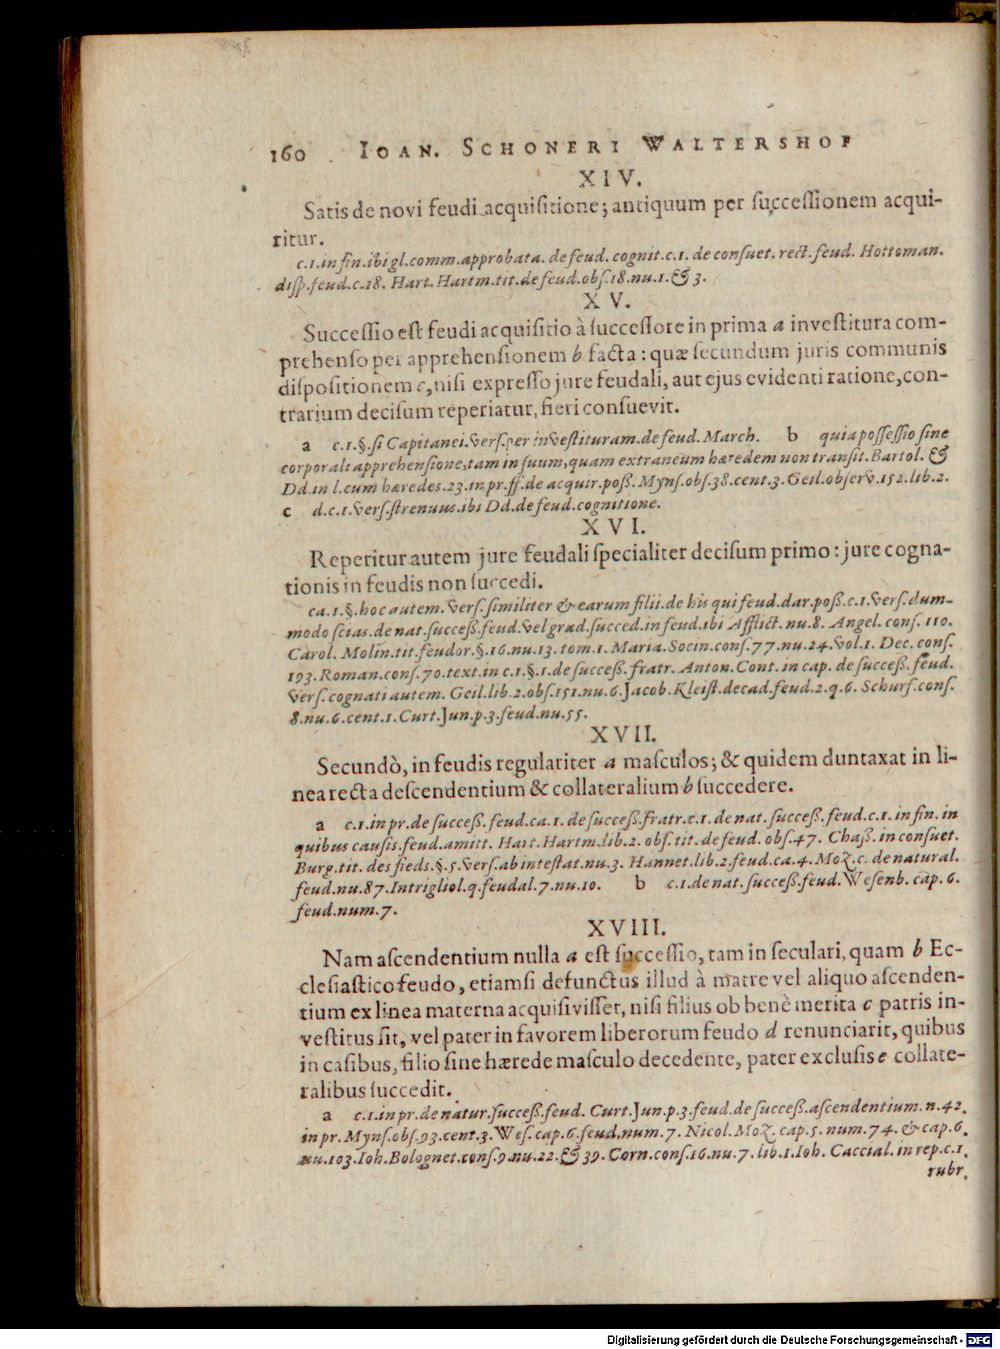 160 IOAN. SCHONERI WALTERSHOF
XIV.
Satis de novi feudi acquisitione; antiquum per successionem acqui-
ritur.
c.1.in fin.ibi gl.comm.approbata. de feud. cognit.c.1. de consuet. rect. feud. Hottoman.
disp.feud.c.18. Hart. Hartm.tit.de feud.obs.18.nu.1.& 3.
XV.
Successio est feudi acquisitio à successore in prima a investitura com-
prehenso per apprehensionem b facta: quæ secundum juris communis
dispositionem c, nisi expresso jure feudali, aut ejus evidenti ratione, con-
trarium decisum reperiatur, fieri consuevit.
a c.1.§.si Capitanei.vers.per investituram.de feud. March. b quia possessio sine
corporali apprehensione, tam in suum, quam extraneum hæredem non transit. Bartol. &
Dd.in l.cum hæredes.23.in pr.ff.de acquir.poß. Myns.obs.38.cent.3. Geil.observ.152.lib.2.
c d.c.1.vers.strenuus.ibi Dd.de feud.cognitione.
XVI.
Reperitur autem jure feudali specialiter decisum primo: jure cogna-
tionis in feudis non succedi.
ca.1.§.hoc autem. vers.similiter & earum filii.de his qui feud.dar.poß.c.1.vers.dum-
modo scias.de nat.succeß.feud.vel grad.succed.in feud.ibi Afflict.nu.8. Angel. cons. 110.
Carol. Molin.tit.feudor.§.16.nu.13. tom.1. Maria. Socin.cons.77.nu.24.vol.1. Dec. cons.
193.Roman.cons.70.text.in c.1.§.1.de succeß.fratr. Anton.Cont. in cap. de succeß. feud.
vers.cognati autem. Geil.lib.2.obs.151.nu.6.Jacob.Kleist.decad.feud.2.q.6. Schurf.cons.
8.nu.6.cent.1.Curt.Jun.p.3.feud.nu.55.
XVII.
Secundò, in feudis regulariter a masculos; & quidem duntaxat in li-
nea recta descendentium & collateralium b succedere.
a c.1.in pr.de succeß.feud.ca.1. de succeß.fratr.c.1. de nat. succeß. feud.c.1. in fin. in
quibus causis.feud.amitt. Hart. Hartm.lib.2. obs.tit. de feud. obs.47. Chaß. in consuet.
Burg.tit. des fieds.§.5.vers.ab intestat.nu.3. Hannet.lib.2.feud.ca.4.Moz.c. de natural.
feud.nu.87.Intrigliol.q.feudal.7.nu.10. b c.1.de nat.succeß.feud.Wesenb. cap. 6.
feud.num.7.
XVIII.
Nam ascendentium nulla a est successio, tam in seculari, quam b Ec-
clesiastico feudo, etiamsi defunctus illud à matre vel aliquo ascenden-
tium ex linea materna acquisivisset, nisi filius ob benè merita c patris in-
vestitus sit, vel pater in favorem liberorum feudo d renunciarit, quibus
in casibus, filio sine hærede masculo decedente, pater exclusis e collate-
ralibus succedit.
a c.1.in pr.de natur.succeß.feud. Curt.Jun.p.3.feud.de succeß.ascendentium. n.42.
in pr. Myns.obs.93.cent.3. Wes. cap.6.feud.num.7. Nicol. Moz. cap.5. num.74. & cap.6.
nu.103.Ioh.Bolognet.cons.9.nu.22.& 39. Corn.cons.16.nu.7.lib.1.Ioh. Caccial. in rep.c.1.
rubr.
Digitalisierung gefördert durch die Deutsche Forschungsgemeinschaft - DFG